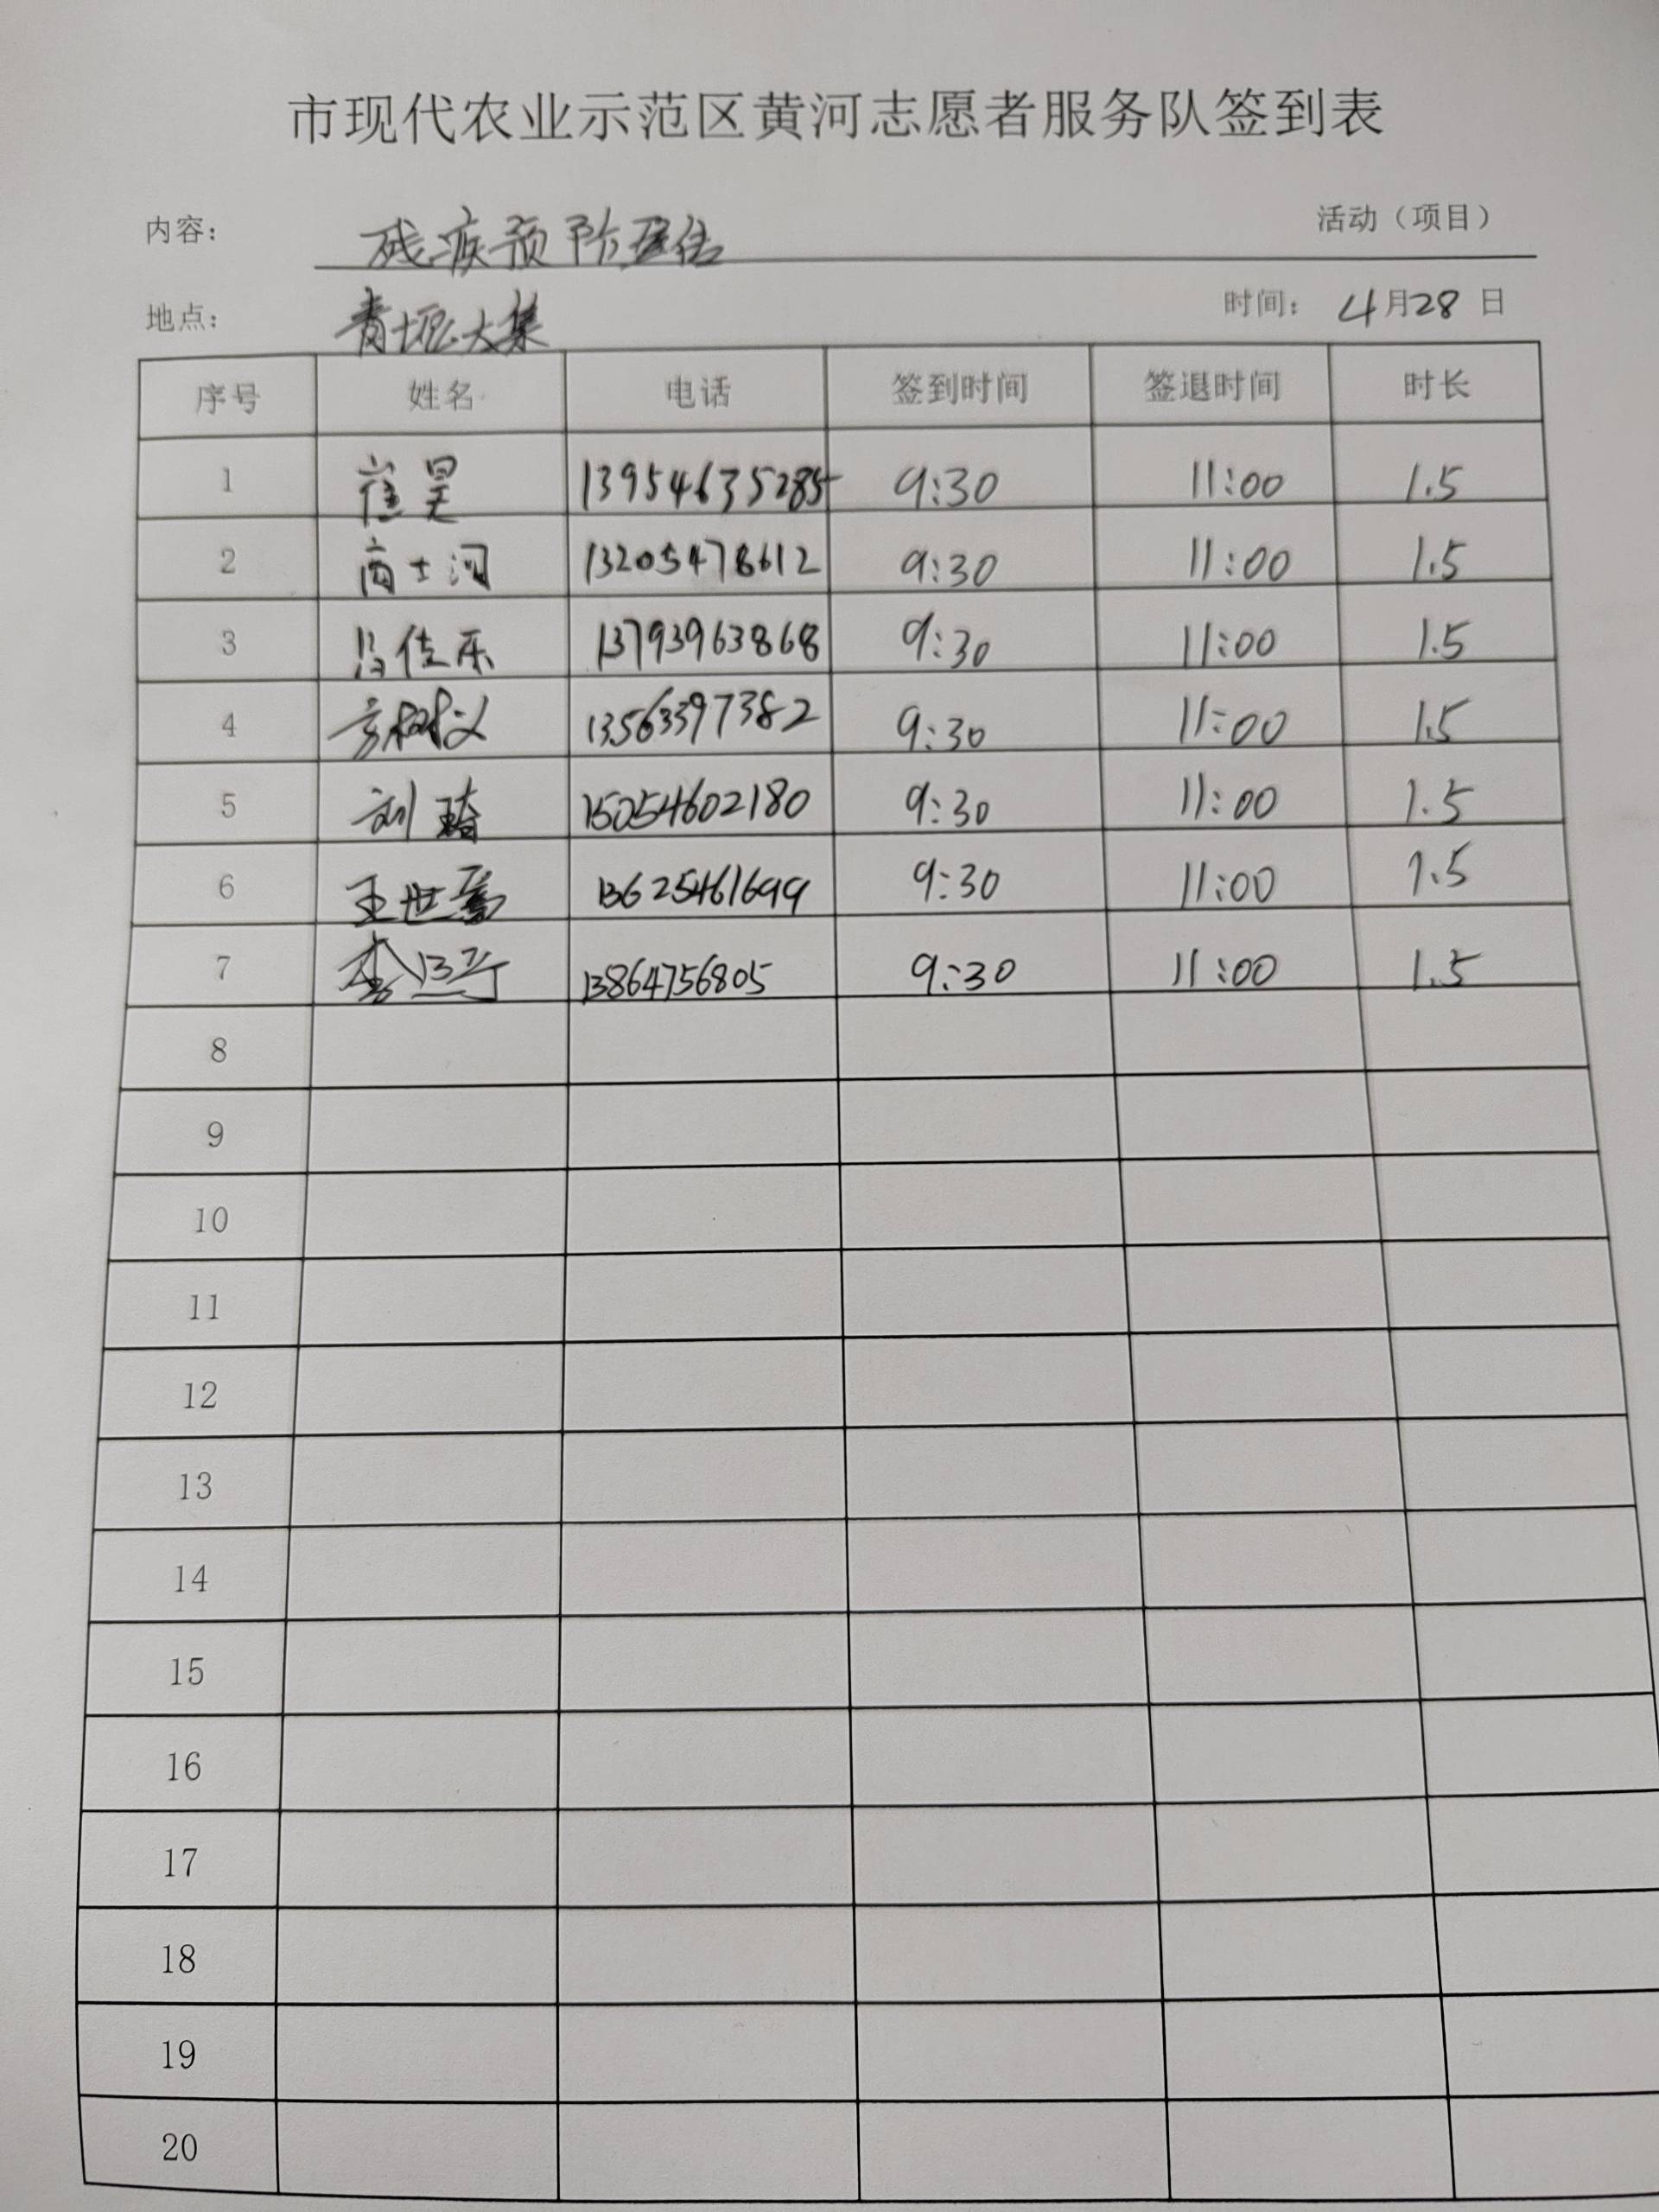 市现代农业示范区黄河志愿者服务队签到表
内容: 残疾预防 活动（项目）
地点: 青坨大集 时间: 4月28日
序号 姓名 电话 签到时间 签退时间 时长
1 崔昊 13954635285 9:30 11:00 1.5
2 商士河 13205478612 9:30 11:00 1.5
3 佳乐 13793963868 9:30 11:00 1.5
4 13563397382 9:30 11:00 1.5
5 刘琦 15054602180 9:30 11:00 1.5
6 王世 13625461699 9:30 11:00 1.5
7 李 13864756805 9:30 11:00 1.5
8
9
10
11
12
13
14
15
16
17
18
19
20